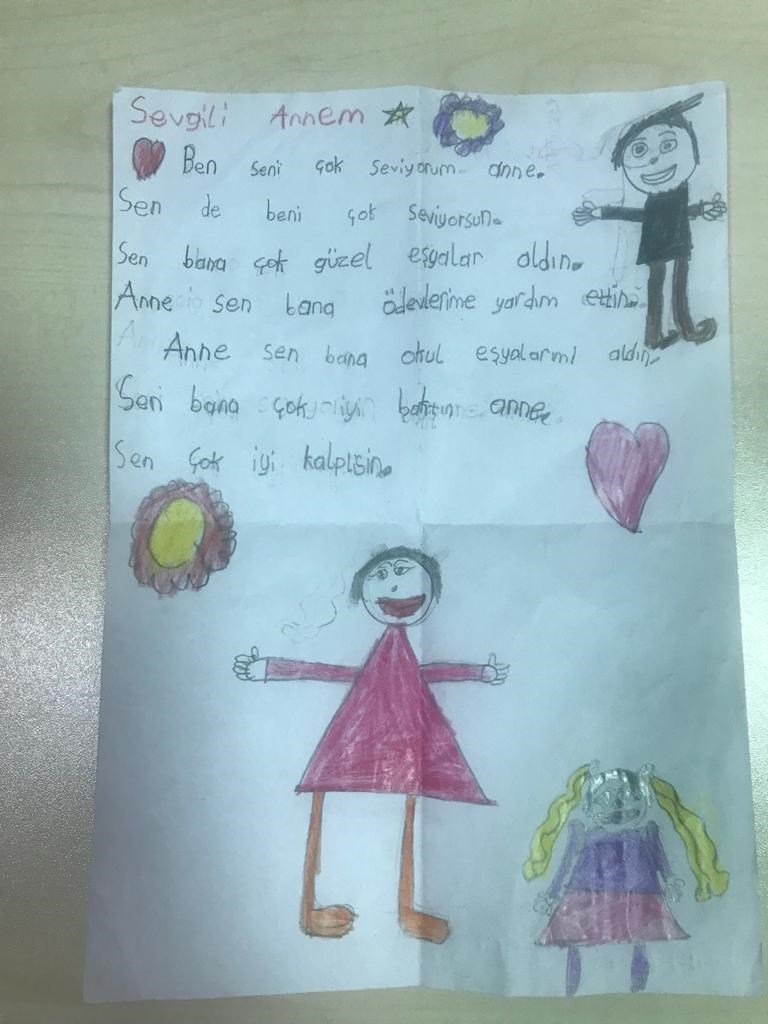 Sevgili Annem
Ben seni çok seviyorum anne.
Sen de beni çok seviyorsun.
Sen bana çok güzel eşyalar aldın.
Anne sen bana ödevlerime yardım ettin.
Anne sen bana okul eşyalarımı aldın.
Sen bana çok iyi baktın anne.
Sen çok iyi kalplisin.